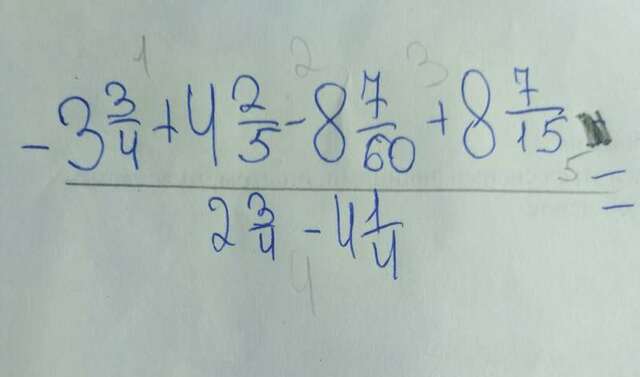 1 2 3
-3 3/4 + 4 2/5 - 8 7/60 + 8 7/15
5 =
2 3/4 - 4 1/4
4